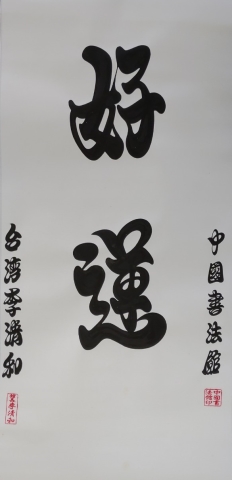 好運
中國書法館
台灣李清和